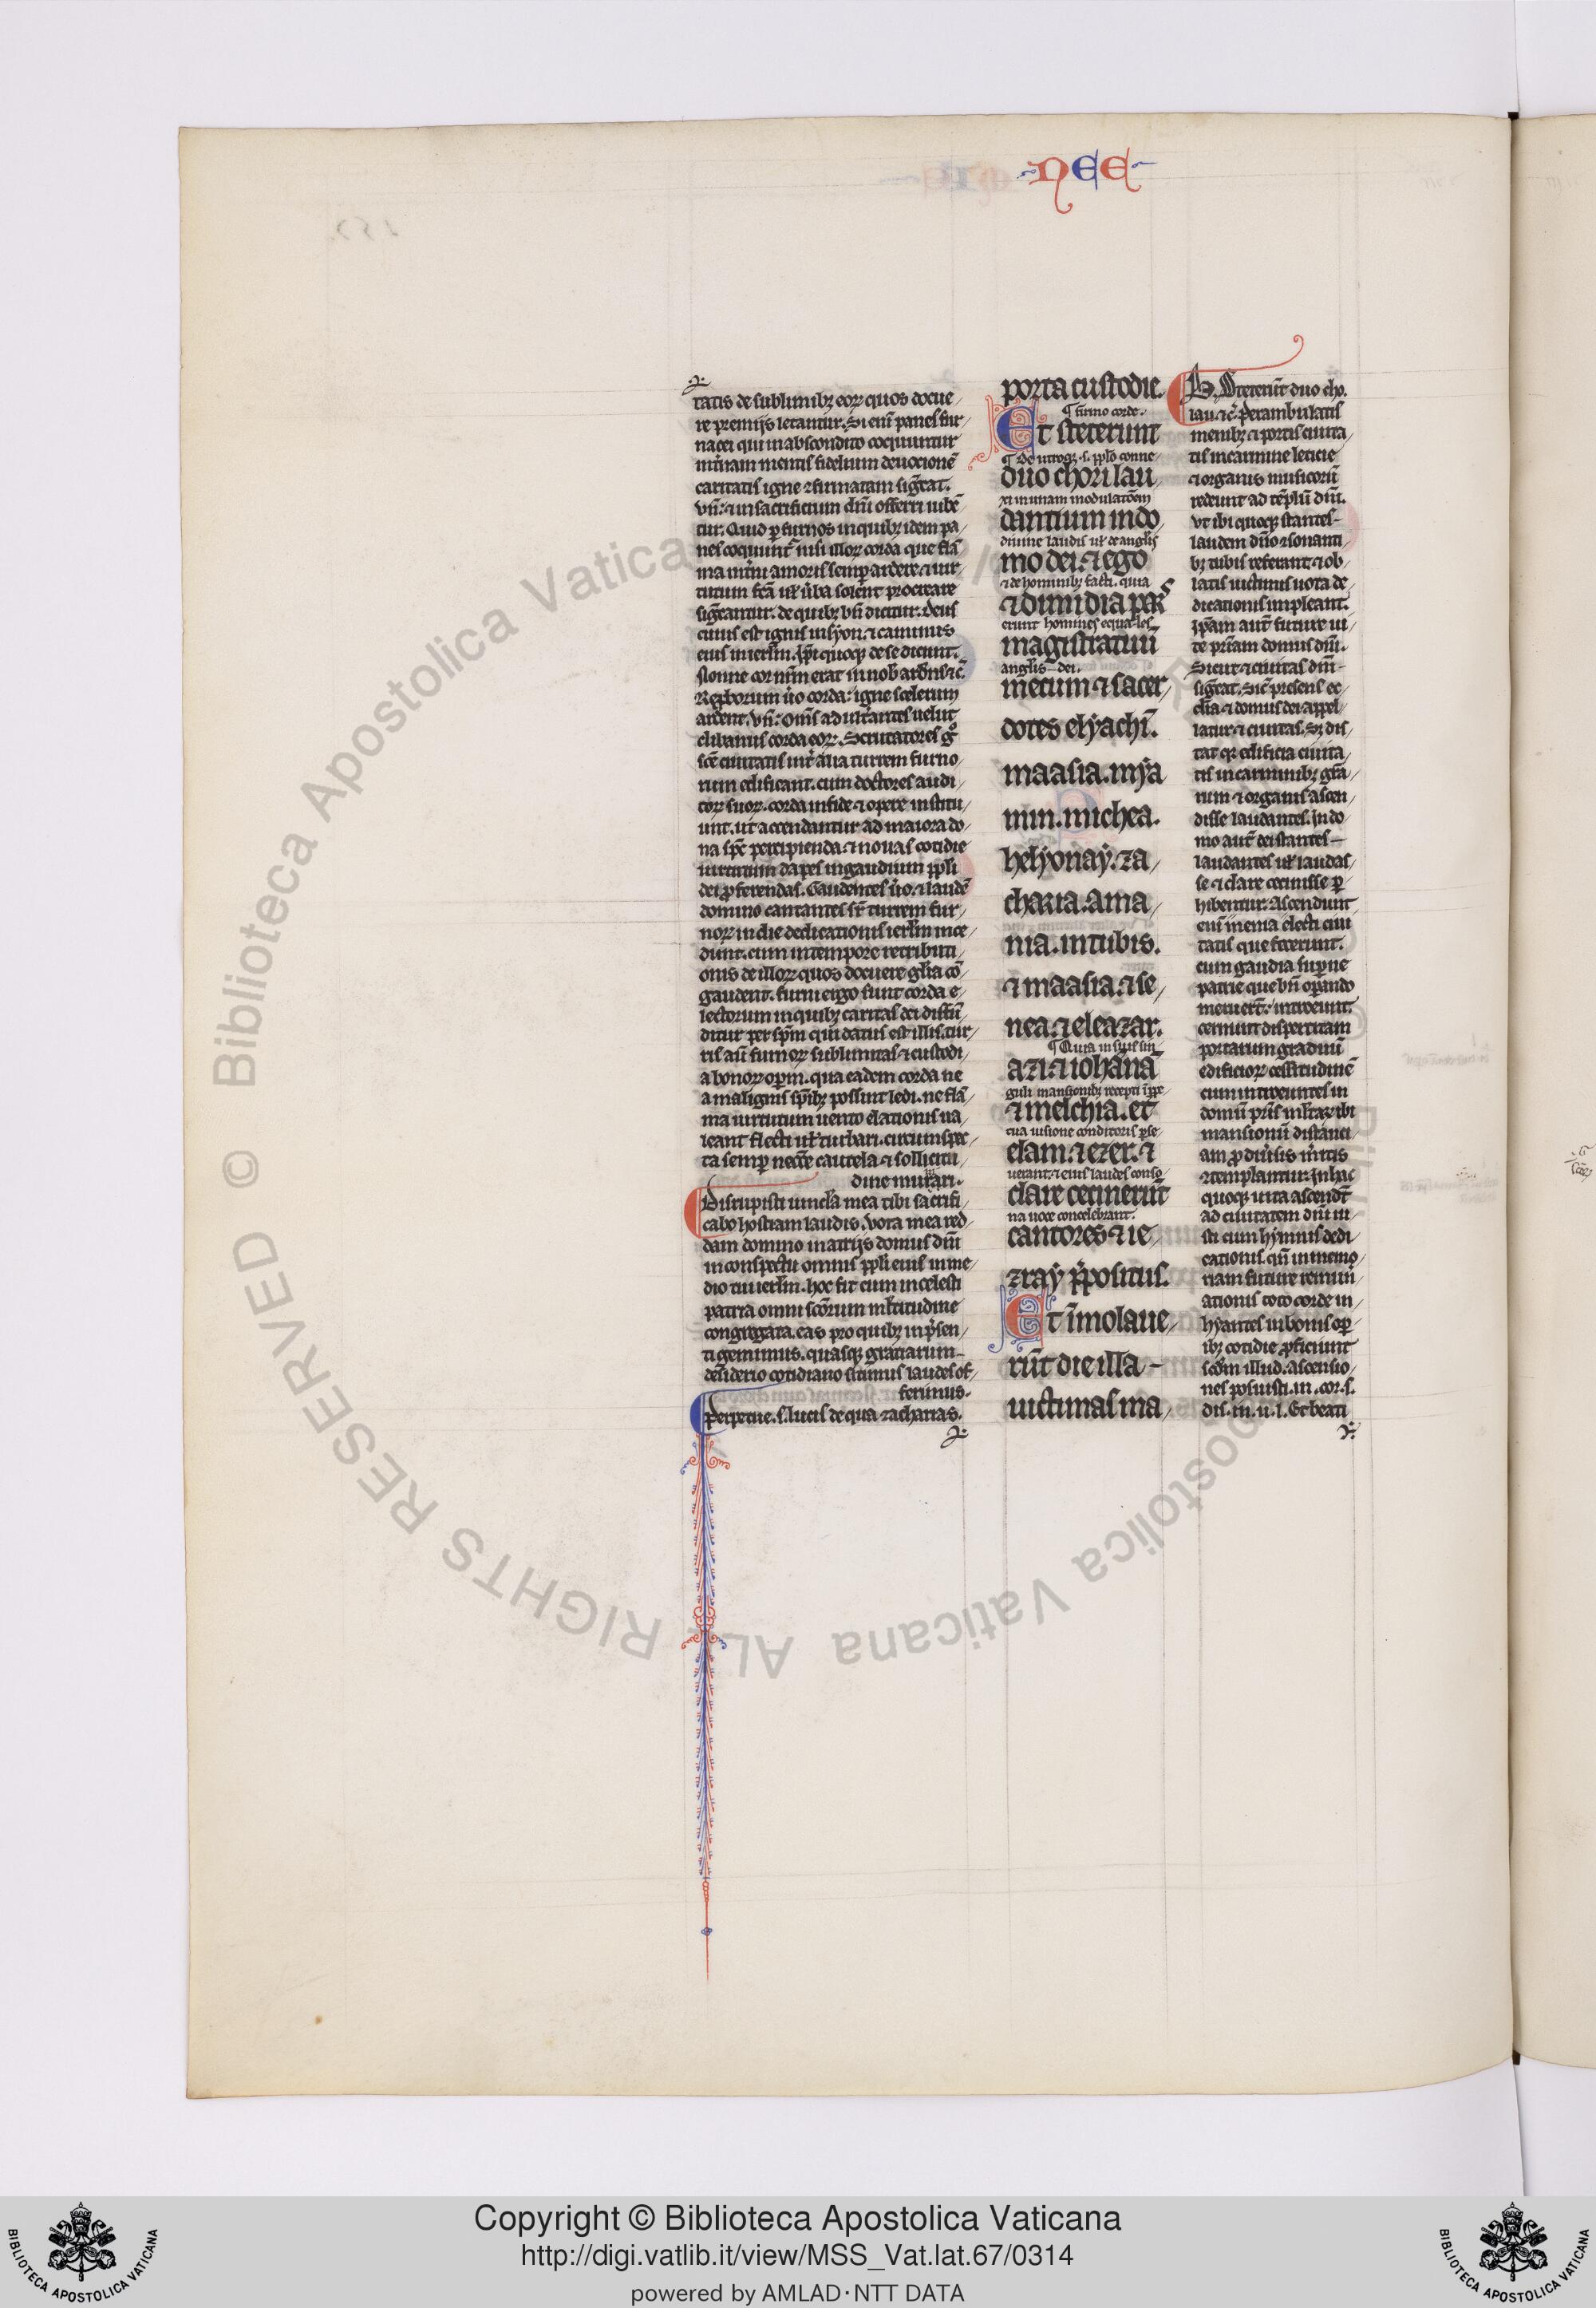 NEE
tatis de sublimibꝫ eoꝝ quos docue
re premijs letantur. Si enī panes fur
nacei qui in abscondito coquuntur
int̄nam mentis fidelium deuocionē
caritatis igne ꝯfirmatam sig̅cat.
vn̄: ⁊ in sacrificium dn̄i offerri iubē
tur. Quid ꝑ furnos in quibꝫ idem pa
nes coquunt᷑ nisi illoꝝ corda que flā
ma int̄ni amoris semꝑ ardere ⁊ uir
tutum fc̄a ul̓ ūba solent procreare
sig̅cantur. de quibꝫ bn̄ dicitur: deus
cuius est ignis in syon. ⁊ caminus
eius in ierl̓m. Ip̄i quoqꝫ de se dicunt.
Nonne cor nr̄m erat in nob̓ ardēs ⁊c̄
Reꝓborum ūo corda: igne scelerum
ardent. vn̄: Om̄s adult̓antes uelut
clibanus corda eoꝝ. Scrutatores gͦ
sc̄e ciuitatis int̓ alia turrem furno
rum edificant. cum doctores audi
toꝝ suoꝝ. corda in fide ⁊ opere institu
unt. ut accendantur ad maiora do
na sp̄c percipienda. ⁊ nouas cotidie
uirtutum dapes in gaudium ꝓpl̓i
dei ꝓferendas. Gaudentes ūo. ⁊ laudē
domino cantantes sr̄ turrem fur
noꝝ in die dedicationis ierl̓m ince
dunt. cum in tempore retributi
onis de illoꝝ quos docuere gl̓ia cō
gaudent. furni ergo sunt corda e
lectorum in quibꝫ caritas dei diffū
ditur per sp̄m qui datus est illis. tur
ris aū furnoꝝ sublimitas ⁊ custodi
a bonoꝝ oꝑm. qua eadem corda ne
a malignis sp̄ibꝫ possint ledi. ne flā
ma uirtutum uento elationis ua
leant flecti ul̓ turbari. circumspec
ta semꝑ necc̄e cautela ⁊ sollicitu
dine muniri.
Disrupisti uincl̓a mea tibi sacrifi
cabo hostiam laudis. Vota mea red
dam domino in atrijs domus dn̄i
in conspectu omnis ꝓpl̓i eius in me
dio tui ierl̓m. hoc fit cum in celesti
patria omni sc̄orum ml̓titudine
congregata. eas pro quibꝫ in p̄sen
ti gemimus. quasqꝫ gratiarum
desiderio cotidiano sitimus laudes of
ferimus.
Perpetue. s. lucis de qua zacharias.
porta custodie.
¶ firmo corde.
Et steterunt
¶ De utroqꝫ. s. ꝓpl̓o conne
duo chori lau
xi in unam modulatōem
dantium in do
diuine laudis ul̓ de angl̓is
mo dei. ⁊ ego
⁊ de hominibꝫ facti. quia
⁊ dimidia pars
erunt homines equales
magistratuū
angl̓is dei.
mecum ⁊ sacer
dotes elyachī.
maasia. mya
min. michea.
helyonay. za
charia. ama
nia. in tubis.
⁊ maasia. ⁊ se
nea. ⁊ eleazar.
¶ Quia in suis sin
azi. ⁊ iohānā
gulis mansionibꝫ recepti
⁊ melchia. et
tua uisione conditoris ꝑse
elam. ⁊ ezer. ⁊
uerant. ⁊ eius laudes conso
clare cecinerūt
na uoce concelebrant.
cantores ⁊ ie
zray p̄positus.
Et īmolaue
rūt die illa
uictimas ma
B. Steterūt duo cho.
lau. ⁊c̄. Perambulatis
menibꝫ ⁊ portis ciuita
tis in carmine leticie
⁊ organis musicorū
redeunt ad tēplū dn̄i.
vt ibi quoqꝫ stantes
laudem dn̄o ꝯsonanti
bꝫ tubis referant. ⁊ ob
latis uictimis uota de
dicationis impleant.
ꝑp̄am aut̄ future ui
te pr̄iam domus dn̄i.
Sicut ⁊ ciuitas dn̄i
sig̅cat. Sic̄ presens ec
cl̓ia ⁊ domus dei appel
latur. ⁊ ciuitas. Sꝫ dis
tat qꝫ edificia ciuita
tis in carminibꝫ gr̄a
rum ⁊ organis ascen
disse laudantes. In do
mo aut̄ dei stantes
laudantes ul̓ laudas
se ⁊ clare cecinisse ꝑ
hibentur. Ascendunt
enī menia electi ciui
tatis que fecerunt.
cum gaudia suꝑne
patrie que bn̄ oꝑando
meruerūt: introeunt.
cernunt dispertitam
portarum graduū
edificioꝝ celsitudinē
cum introeuntes in
domū pr̄is ml̓taꝝ ibi
mansionū distanci
am ꝓ diūsis m̓itis
ꝯtemplantur. In hac
quoqꝫ uita ascendūt
ad ciuitatem dn̄i iu
sti cum hymnis dedi
cationis. qn̄ in memo
riam future remun̓
ationis toto corde in
hyantes in bonis oꝑ
ibꝫ cotidie ꝓficiunt
scd̄m illud. ascensio
nes posuisti. in. cor. s.
dis. in. u. l. Et beati
Copyright © Biblioteca Apostolica Vaticana
http://digi.vatlib.it/view/MSS_Vat.lat.67/0314
powered by AMLAD·NTT DATA
BIBLIOTECA APOSTOLICA VATICANA
BIBLIOTECA APOSTOLICA VATICANA
© Biblioteca Apostolica Vaticana ALL RIGHTS RESERVED